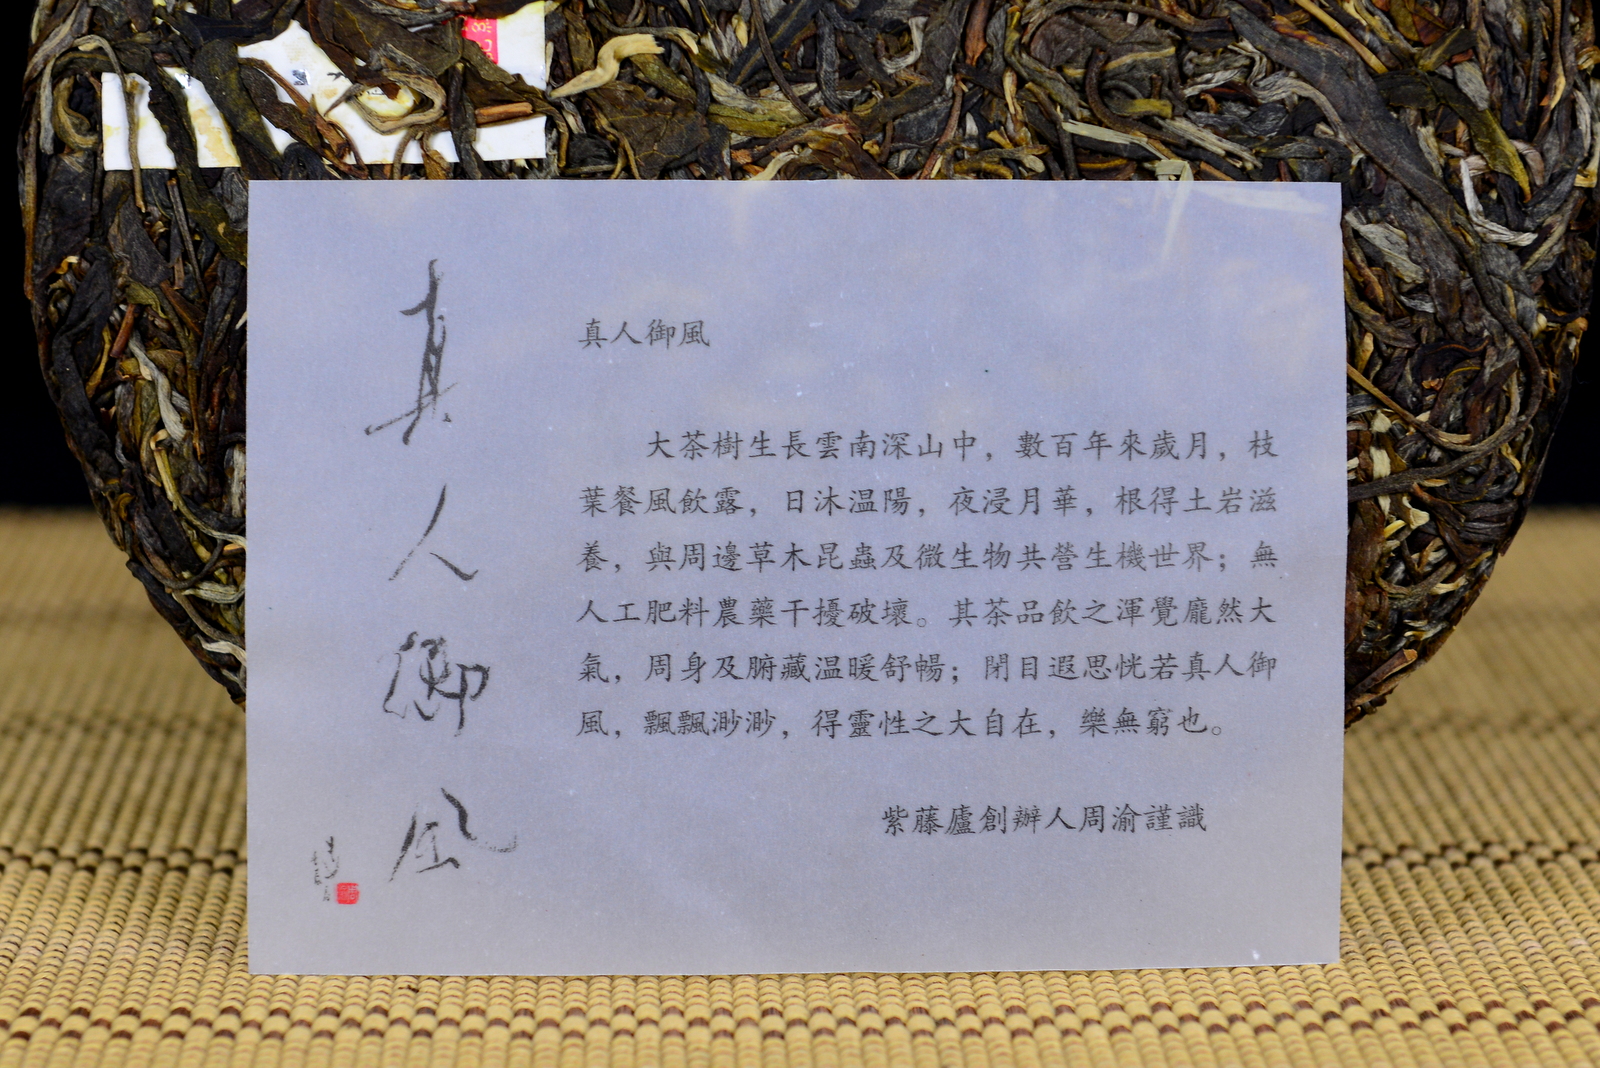 真人御風
真人御風
大茶樹生長雲南深山中，數百年來歲月，枝
葉餐風飲露，日沐温陽，夜浸月華，根得土岩滋
養，與周邊草木昆蟲及微生物共營生機世界；無
人工肥料農藥干擾破壞。其茶品飲之渾覺龐然大
氣，周身及腑藏温暖舒暢；閉目遐思恍若真人御
風，飄飄渺渺，得靈性之大自在，樂無窮也。
紫藤廬創辦人周渝謹識